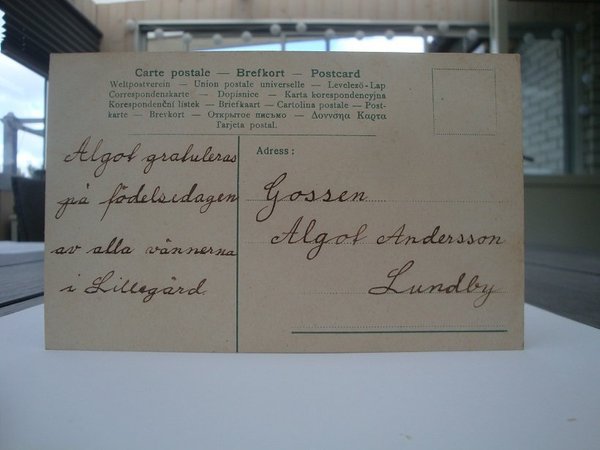 Carte postale — Brefkort — Postcard
Weltpostverein — Union postale universelle — Levelező-Lap
Correspondenzkarte — Dopisnice — Karta korespondencyjna
Korespondenční listek — Briefkaart — Cartolina postale — Post-
karte — Brevkort — Открытое письмо — Δοννσηα Καρτα
Tarjeta postal.
Algot gratuleras
på födelsedagen
av alla vännerna
i Lillegård.
Adress:
Gossen
Algot Andersson
Lundby